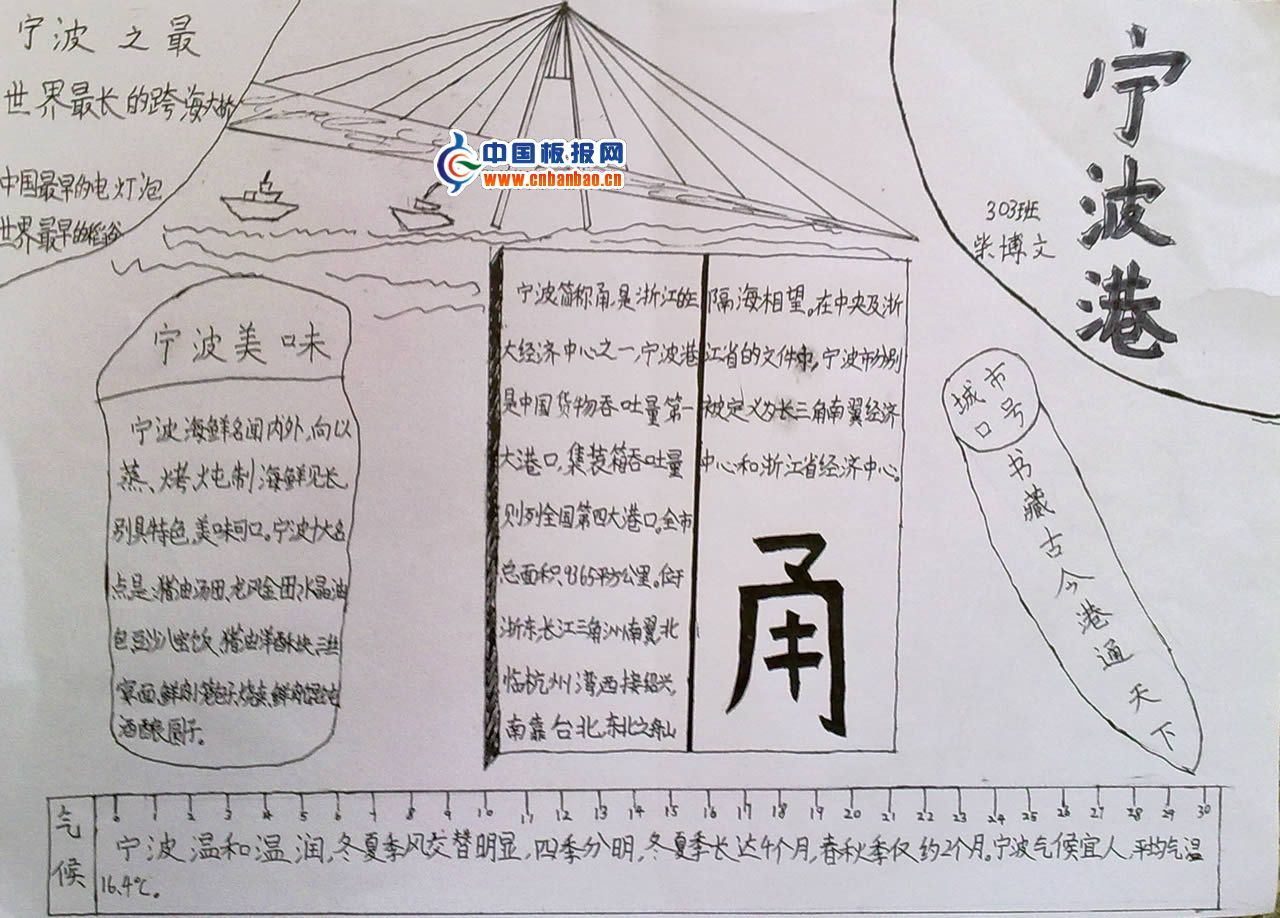 宁波之最
世界最长的跨海大桥
中国最早的电灯泡
世界最早的稻谷
中国板报网
www.cnbanbao.cn
宁波港
303班
柴博文
宁波美味
宁波海鲜名闻内外,向以
蒸、烤、炖制海鲜见长
别具特色,美味可口。宁波十大名
点是:猪油汤团、龙凤金团、水晶油
包、豆沙八宝饭、猪油洋酥块、三丝
宴面、鲜肉小笼包子、烧卖、鲜肉馄饨
酒酿圆子。
宁波简称甬,是浙江的三
大经济中心之一,宁波港
是中国货物吞吐量第一
大港口,集装箱吞吐量
则列全国第四大港口。全市
总面积9365平方公里。位于
浙东,长江三角洲南翼,北
临杭州湾,西接绍兴,
南靠台北,东北之舟山
隔海相望。在中央及浙
江省的文件中,宁波市分别
被定义为长三角南翼经济
中心和浙江省经济中心。
甬
城市
口号
书藏古今港通天下
气候
0 1 2 3 4 5 6 7 8 9 10 11 12 13 14 15 16 17 18 19 20 21 22 23 24 25 26 27 28 29 30
宁波温和温润,冬夏季风交替明显,四季分明,冬夏季长达4个月,春秋季仅约2个月。宁波气候宜人,平均气温
16.4℃。